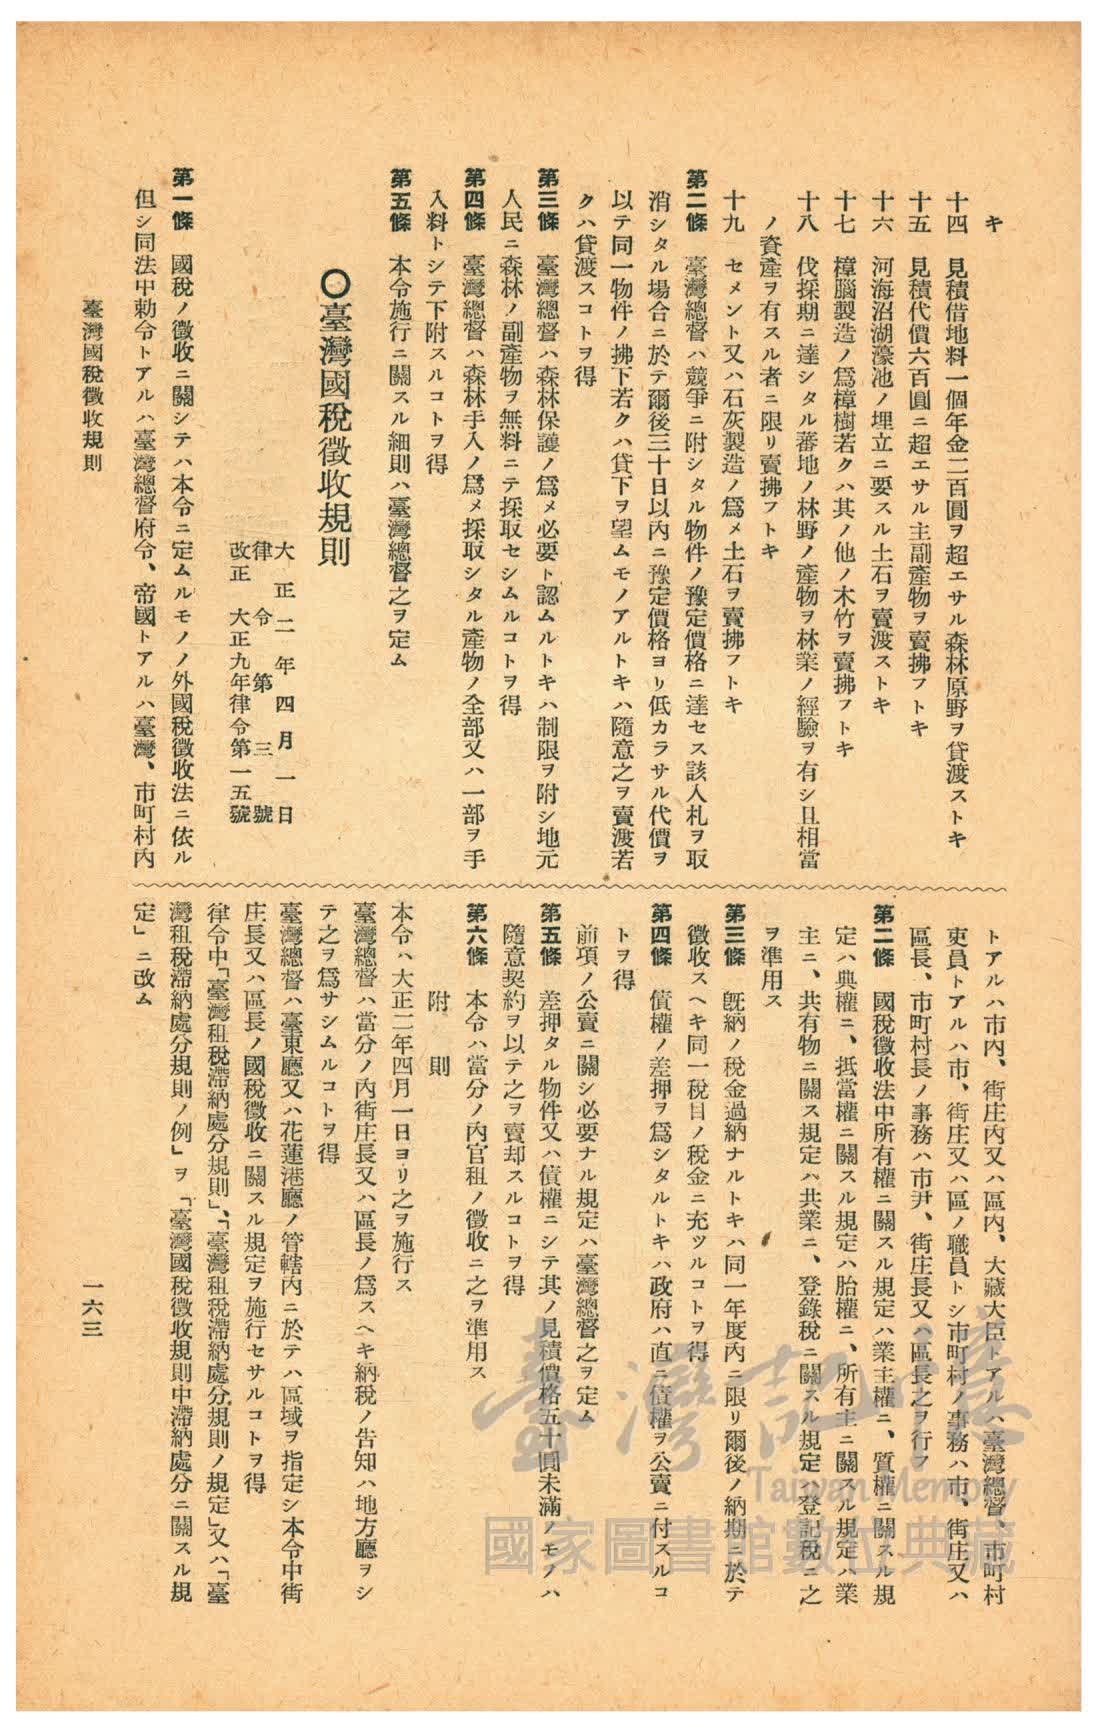 キ
十四　見積借地料一個年金二百圓ヲ超エサル森林原野ヲ貸渡ストキ
十五　見積代價六百圓ニ超エサル主副產物ヲ賣拂フトキ
十六　河海沼湖濠池ノ埋立ニ要スル土石ヲ賣渡ストキ
十七　樟腦製造ノ爲樟樹若クハ其ノ他ノ木竹ヲ賣拂フトキ
十八　伐採期ニ達シタル蕃地ノ林野ノ產物ヲ林業ノ經驗ヲ有シ且相當
ノ資產ヲ有スル者ニ限リ賣拂フトキ
十九　セメント又ハ石灰製造ノ爲メ土石ヲ賣拂フトキ
第二條　臺灣總督ハ競爭ニ附シタル物件ノ豫定價格ニ達セス該入札ヲ取
消シタル場合ニ於テ爾後三十日以內ニ豫定價格ヨリ低カラサル代價ヲ
以テ同一物件ノ拂下若クハ貸下ヲ望ムモノアルトキハ隨意之ヲ賣渡若
クハ貸渡スコトヲ得
第三條　臺灣總督ハ森林保護ノ爲メ必要ト認ムルトキハ制限ヲ附シ地元
人民ニ森林ノ副產物ヲ無料ニテ採取セシムルコトヲ得
第四條　臺灣總督ハ森林手入ノ爲メ採取シタル產物ノ全部又ハ一部ヲ手
入料トシテ下附スルコトヲ得
第五條　本令施行ニ關スル細則ハ臺灣總督之ヲ定ム
〇臺灣國稅徵收規則
大正二年四月一日
律令第三號
改正　大正九年律令第一五號
第一條　國稅ノ徵收ニ關シテハ本令ニ定ムルモノノ外國稅徵收法ニ依ル
但シ同法中勅令トアルハ臺灣總督府令、帝國トアルハ臺灣、市町村內
トアルハ市內、街庄內又ハ區內、大藏大臣トアルハ臺灣總督、市町村
吏員トアルハ市、街庄又ハ區ノ職員トシ市町村ノ事務ハ市、街庄又ハ
區長、市町村長ノ事務ハ市尹、街庄長又ハ區長之ヲ行フ
第二條　國稅徵收法中所有權ニ關スル規定ハ業主權ニ、質權ニ關スル規
定ハ典權ニ、抵當權ニ關スル規定ハ胎權ニ、所有主ニ關スル規定ハ業
主ニ、共有物ニ關ス規定ハ共業ニ、登錄稅ニ關スル規定ハ登記稅ニ之
ヲ準用ス
第三條　旣納ノ稅金過納ナルトキハ同一年度內ニ限リ爾後ノ納期ニ於テ
徵收スヘキ同一稅目ノ稅金ニ充ツルコトヲ得
第四條　債權ノ差押ヲ爲シタルトキハ政府ハ直ニ債權ヲ公賣ニ付スルコ
トヲ得
前項ノ公賣ニ關シ必要ナル規定ハ臺灣總督之ヲ定ム
第五條　差押タル物件又ハ債權ニシテ其ノ見積價格五十圓未滿ノモノハ
隨意契約ヲ以テ之ヲ賣却スルコトヲ得
第六條　本令ハ當分ノ內官租ノ徵收ニ之ヲ準用ス
附則
本令ハ大正二年四月一日ヨリ之ヲ施行ス
臺灣總督ハ當分ノ內街庄長又ハ區長ノ爲スヘキ納稅ノ告知ハ地方廳ヲシ
テ之ヲ爲サシムルコトヲ得
臺灣總督ハ臺東廳又ハ花蓮港廳ノ管轄內ニ於テハ區域ヲ指定シ本令中街
庄長又ハ區長ノ國稅徵收ニ關スル規定ヲ施行セサルコトヲ得
律令中「臺灣租稅滯納處分規則」、「臺灣租稅滯納處分規則ノ規定」又ハ「臺
灣租稅滯納處分規則ノ例」ヲ「臺灣國稅徵收規則中滯納處分ニ關スル規
定」ニ改ム
臺灣國稅徵收規則
一六三
臺灣記憶
Taiwan Memory
國家圖書館數位典藏